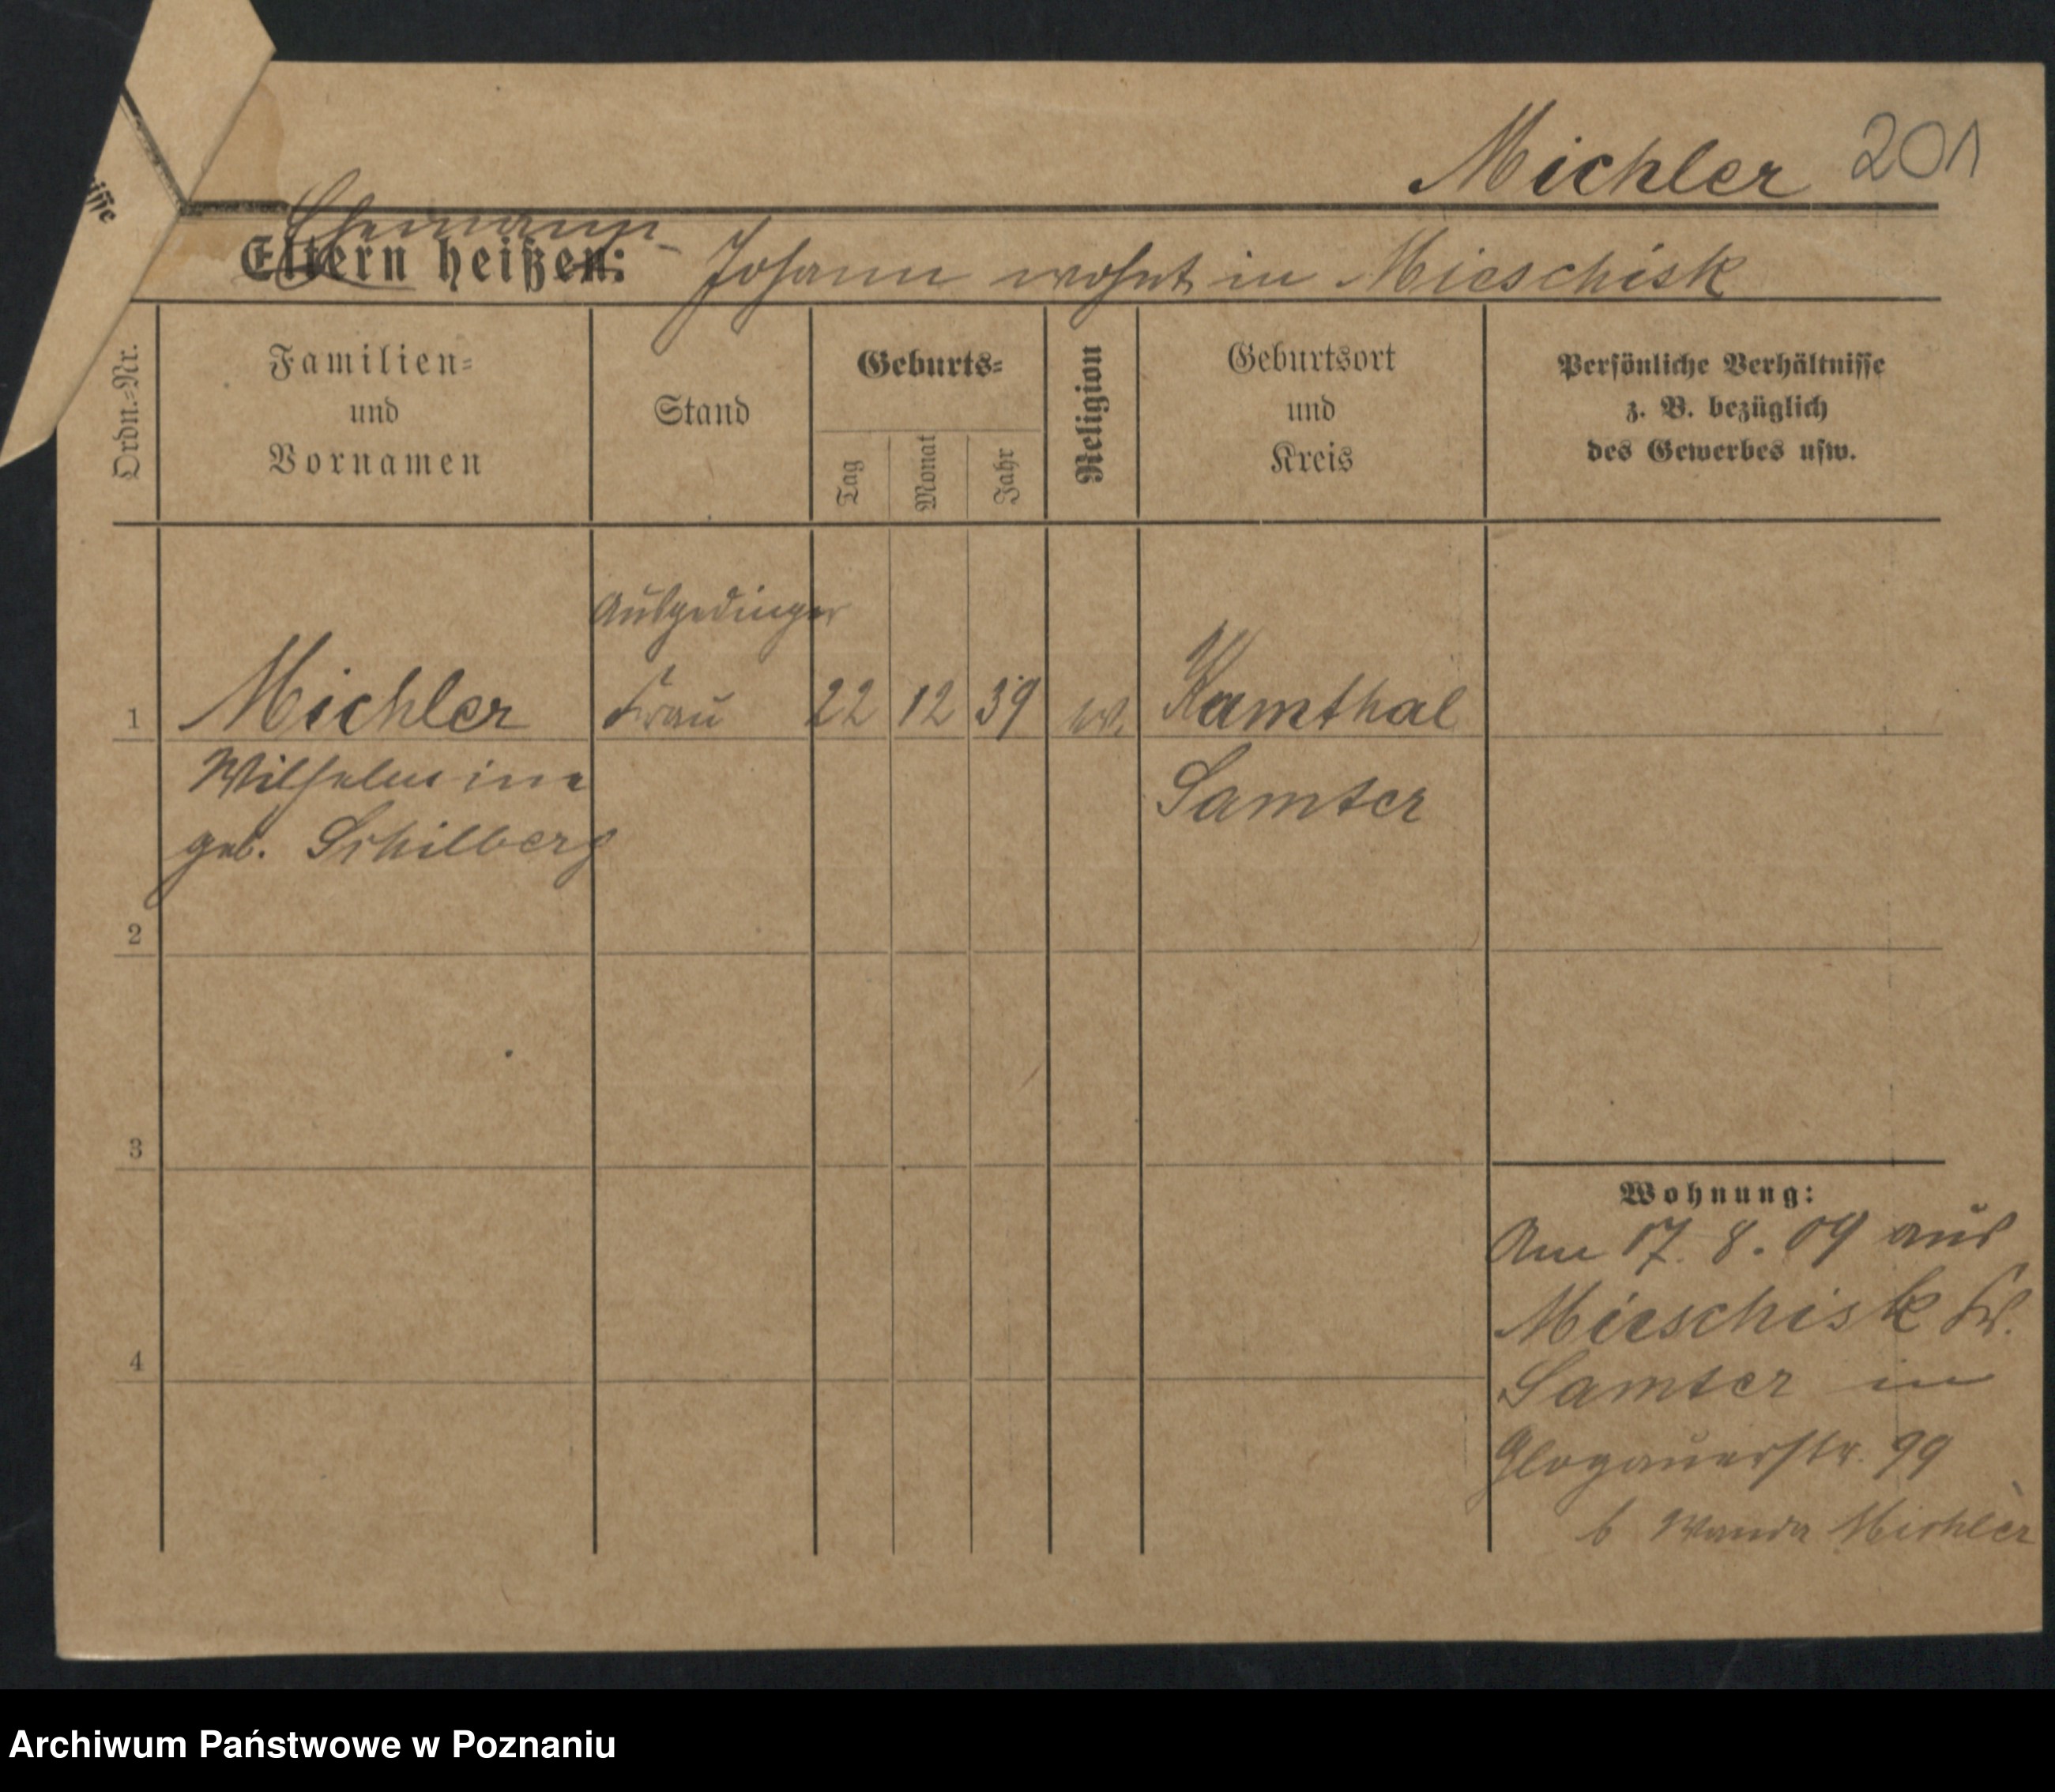 Michler 201
Ehemann
Eltern heißen: Johann wohnt in Mieschisk
Ordn.-Nr.
Familien-
und
Vornamen
Stand
Geburts-
Tag
Monat
Jahr
Religion
Geburtsort
und
Kreis
Persönliche Verhältnisse
z. B. bezüglich
des Gewerbes usw.
Ausgedinger
1 Michler Frau 22 12 39 ev. Kamthal
Wilhelmine Samter
geb. Schilberg
2
3
4
Wohnung:
Am 17. 8. 09 aus
Mieschisk Kr.
Samter in
Glogauerstr. 99
b Wanda Michler
Archiwum Państwowe w Poznaniu